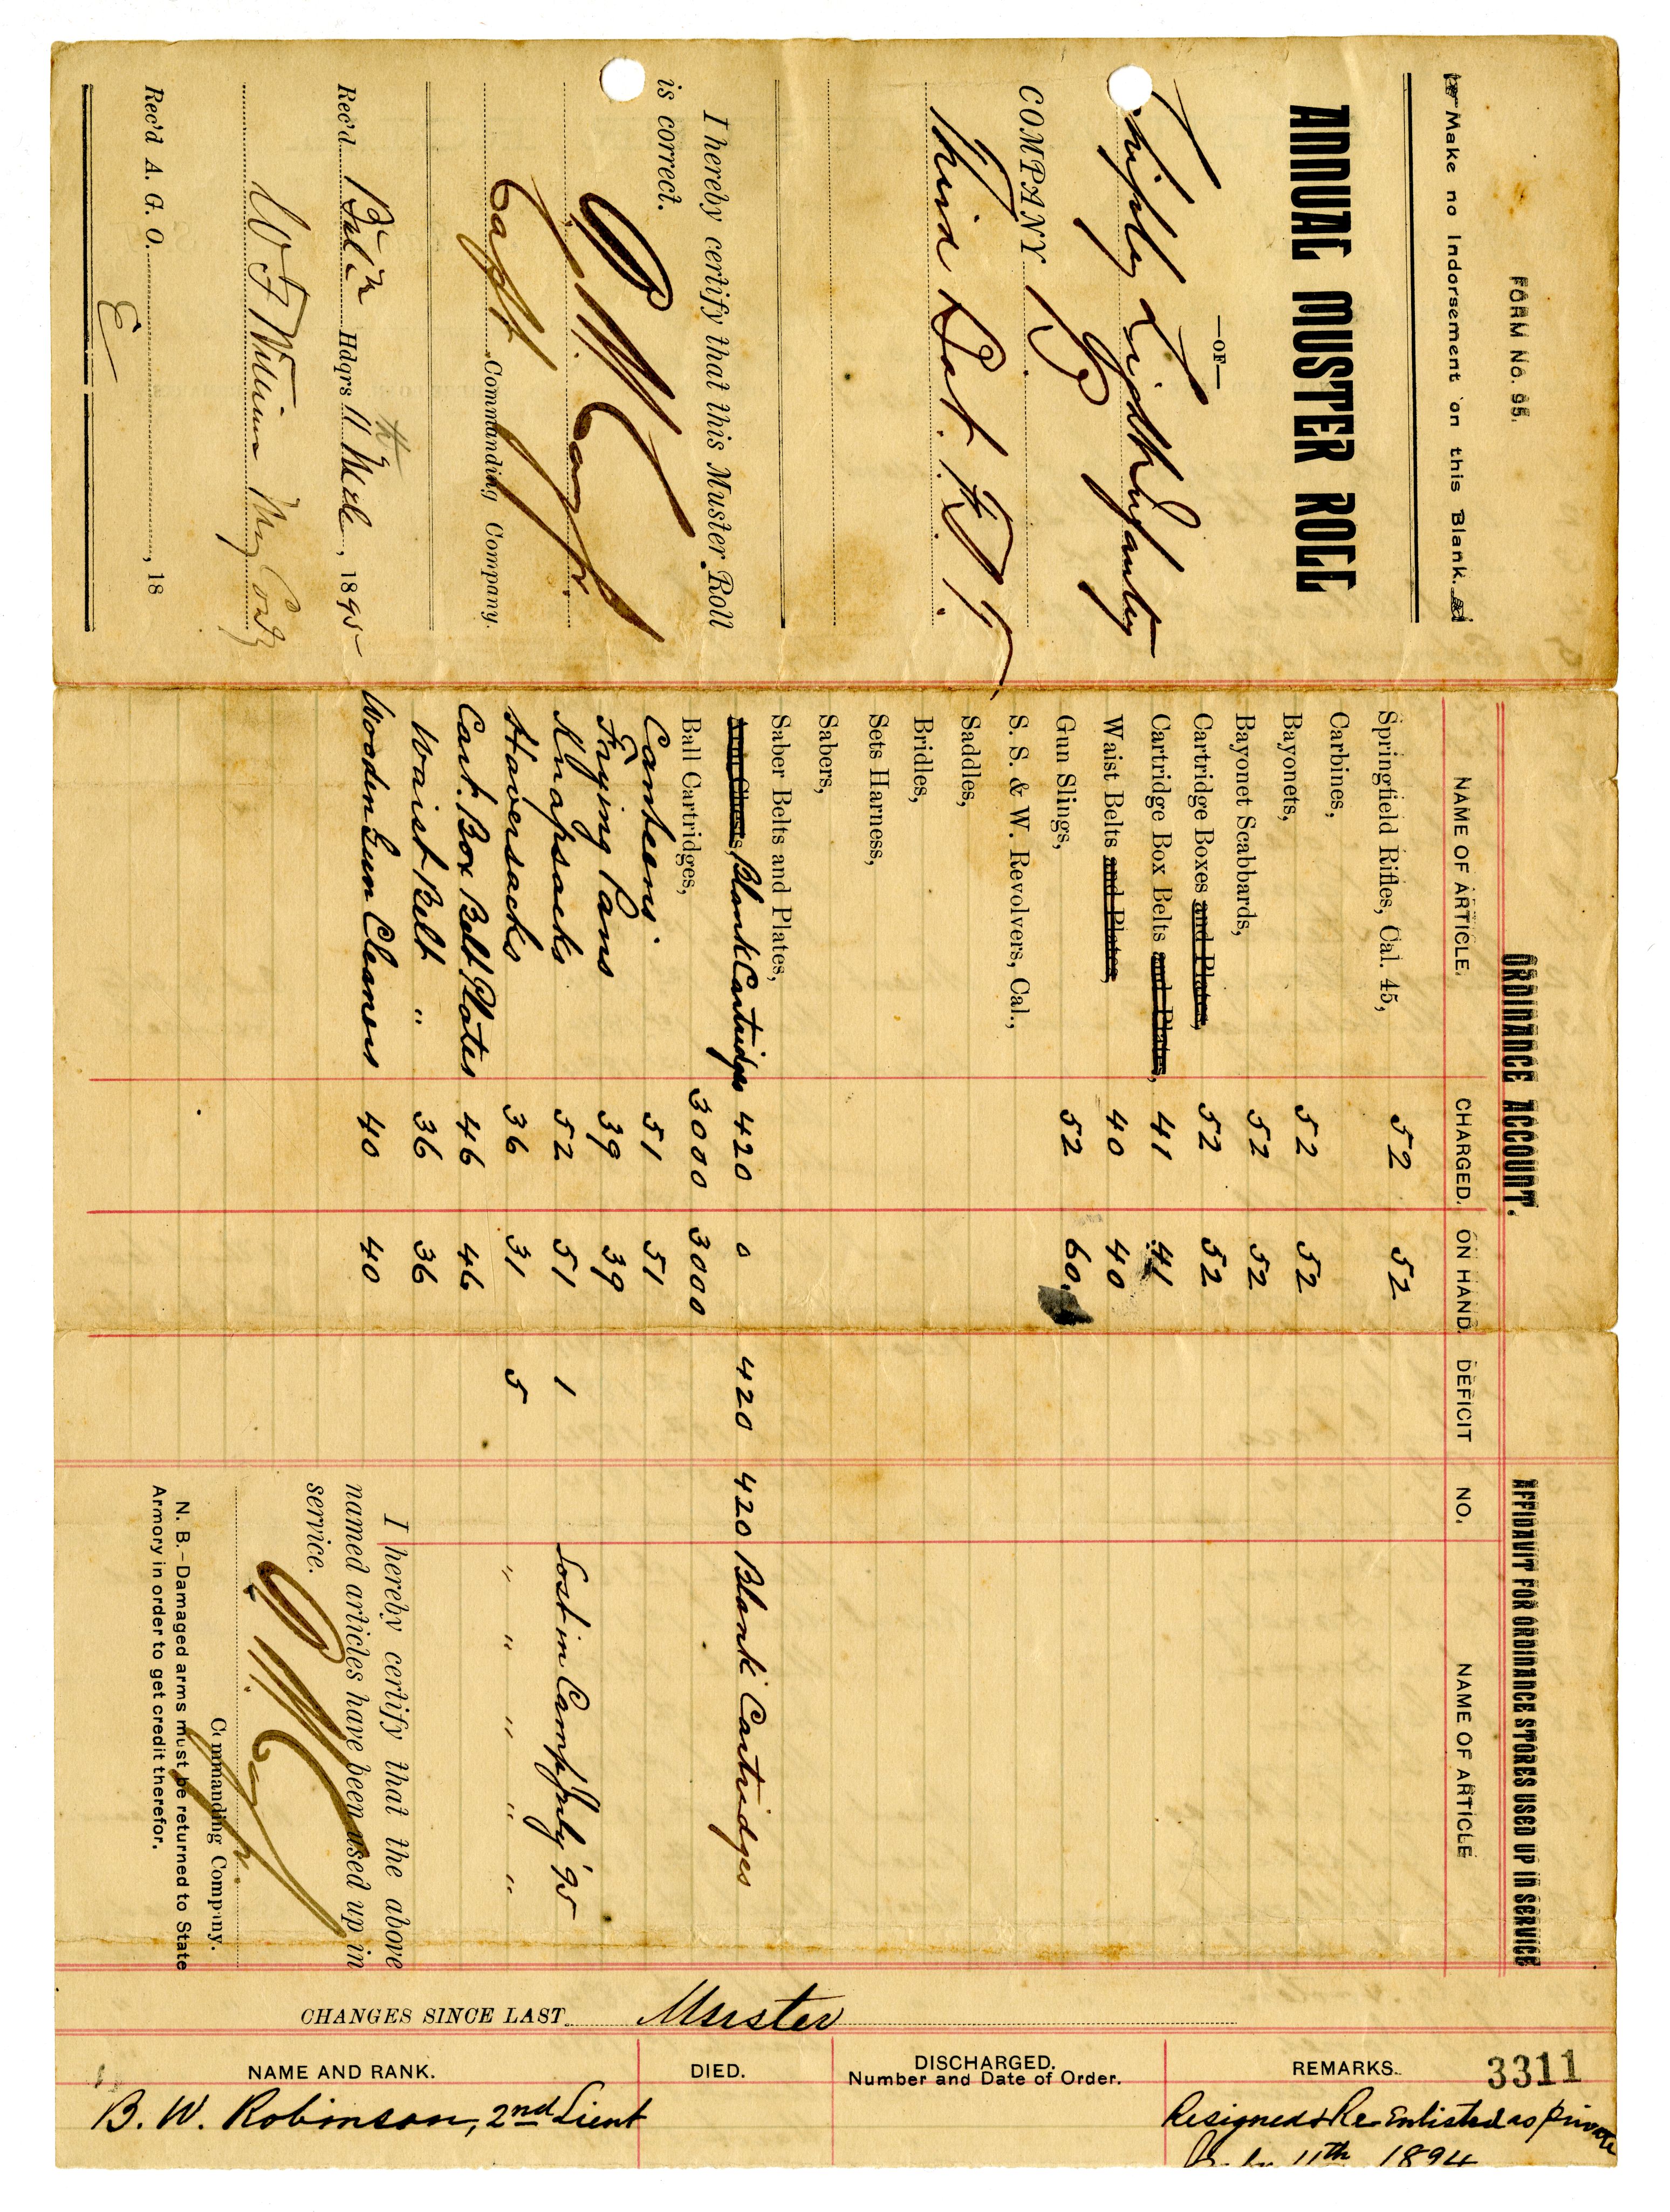 FORM No. 95.
Make no Indorsement on this Blank.
ANNUAL MUSTER ROLL
—OF—
Chipley Light Infantry
COMPANY B
Third Bat. Fla. S. T.
I hereby certify that this Muster Roll
is correct.
Capt. Commanding Company.
Rec'd Batln Hdqrs 11th, 1895
W F Williams
Rec'd A. G. O. , 18
E
ORDINANCE ACCOUNT.
NAME OF ARTICLE. CHARGED. ON HAND. DEFICIT
Springfield Rifles, Cal. 45, 52 52
Carbines,
Bayonets, 52 52
Bayonet Scabbards, 52 52
Cartridge Boxes and Plates, 52 52
Cartridge Box Belts and Plates, 41 41
Waist Belts and Plates, 40 40
Gun Slings, 52 60
S. S. & W. Revolvers, Cal.,
Saddles,
Bridles,
Sets Harness,
Sabers,
Saber Belts and Plates,
Arm Chests, Blank Cartridges 420 0 420
Ball Cartridges, 3000 3000
Canteens 51 51
Frying Pans 39 39
Knapsacks 52 51 1
Haversacks 36 31 5
Cart. Box Belt Plates 46 46
Waist Belt " 36 36
Wooden Gun Cleaners 40 40
AFFIDAVIT FOR ORDINANCE STORES USED UP IN SERVICE
NO. NAME OF ARTICLE
420 Blank Cartridges
Lost in Camp July '95
" " " " "
I hereby certify that the above
named articles have been used up in
service.
Commanding Company.
N. B.—Damaged arms must be returned to State
Armory in order to get credit therefor.
CHANGES SINCE LAST Muster
NAME AND RANK. DIED. DISCHARGED. Number and Date of Order. REMARKS. 3311
B. W. Robinson, 2nd Lieut Resigned & Re-Enlisted as private
11th 1894